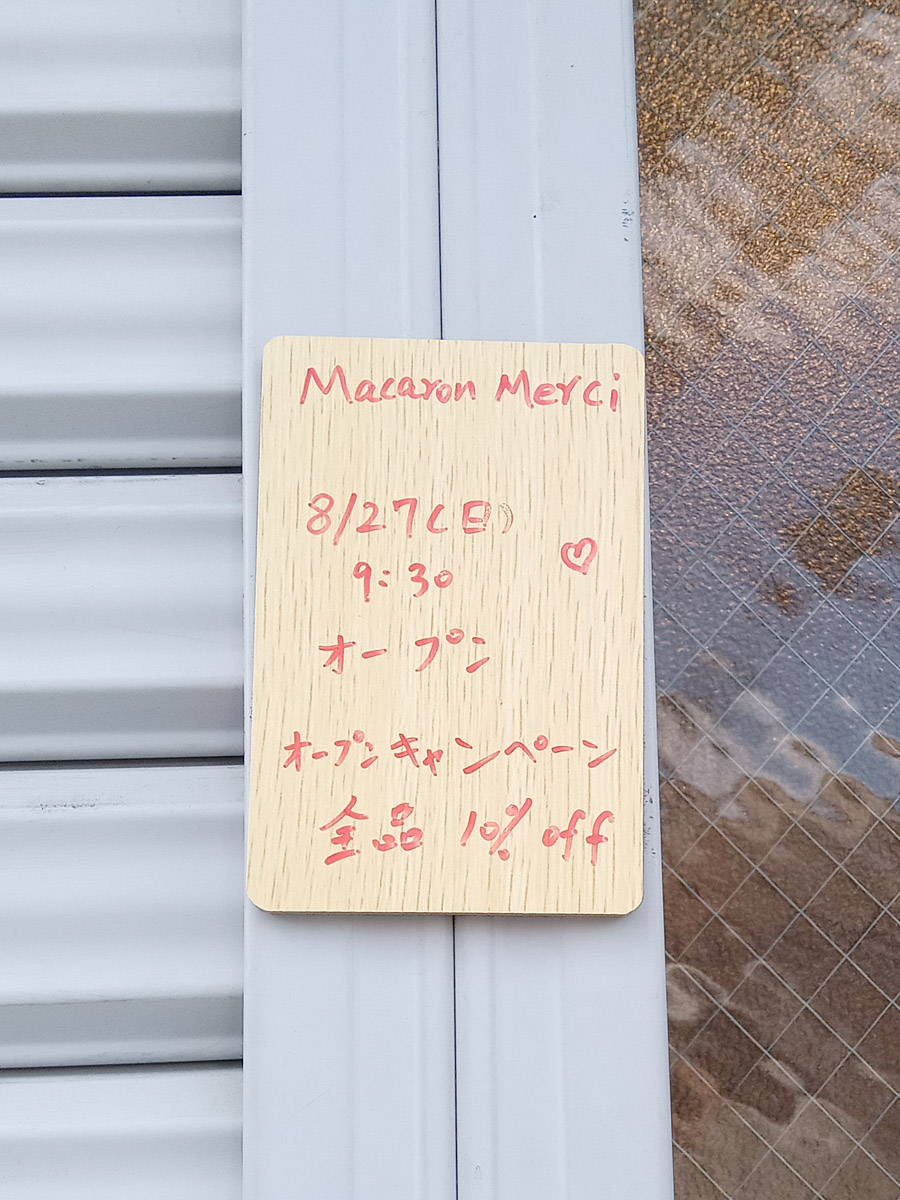 Macaron Merci
8/27(日)
9:30
オープン
オープンキャンペーン
全品 10% off